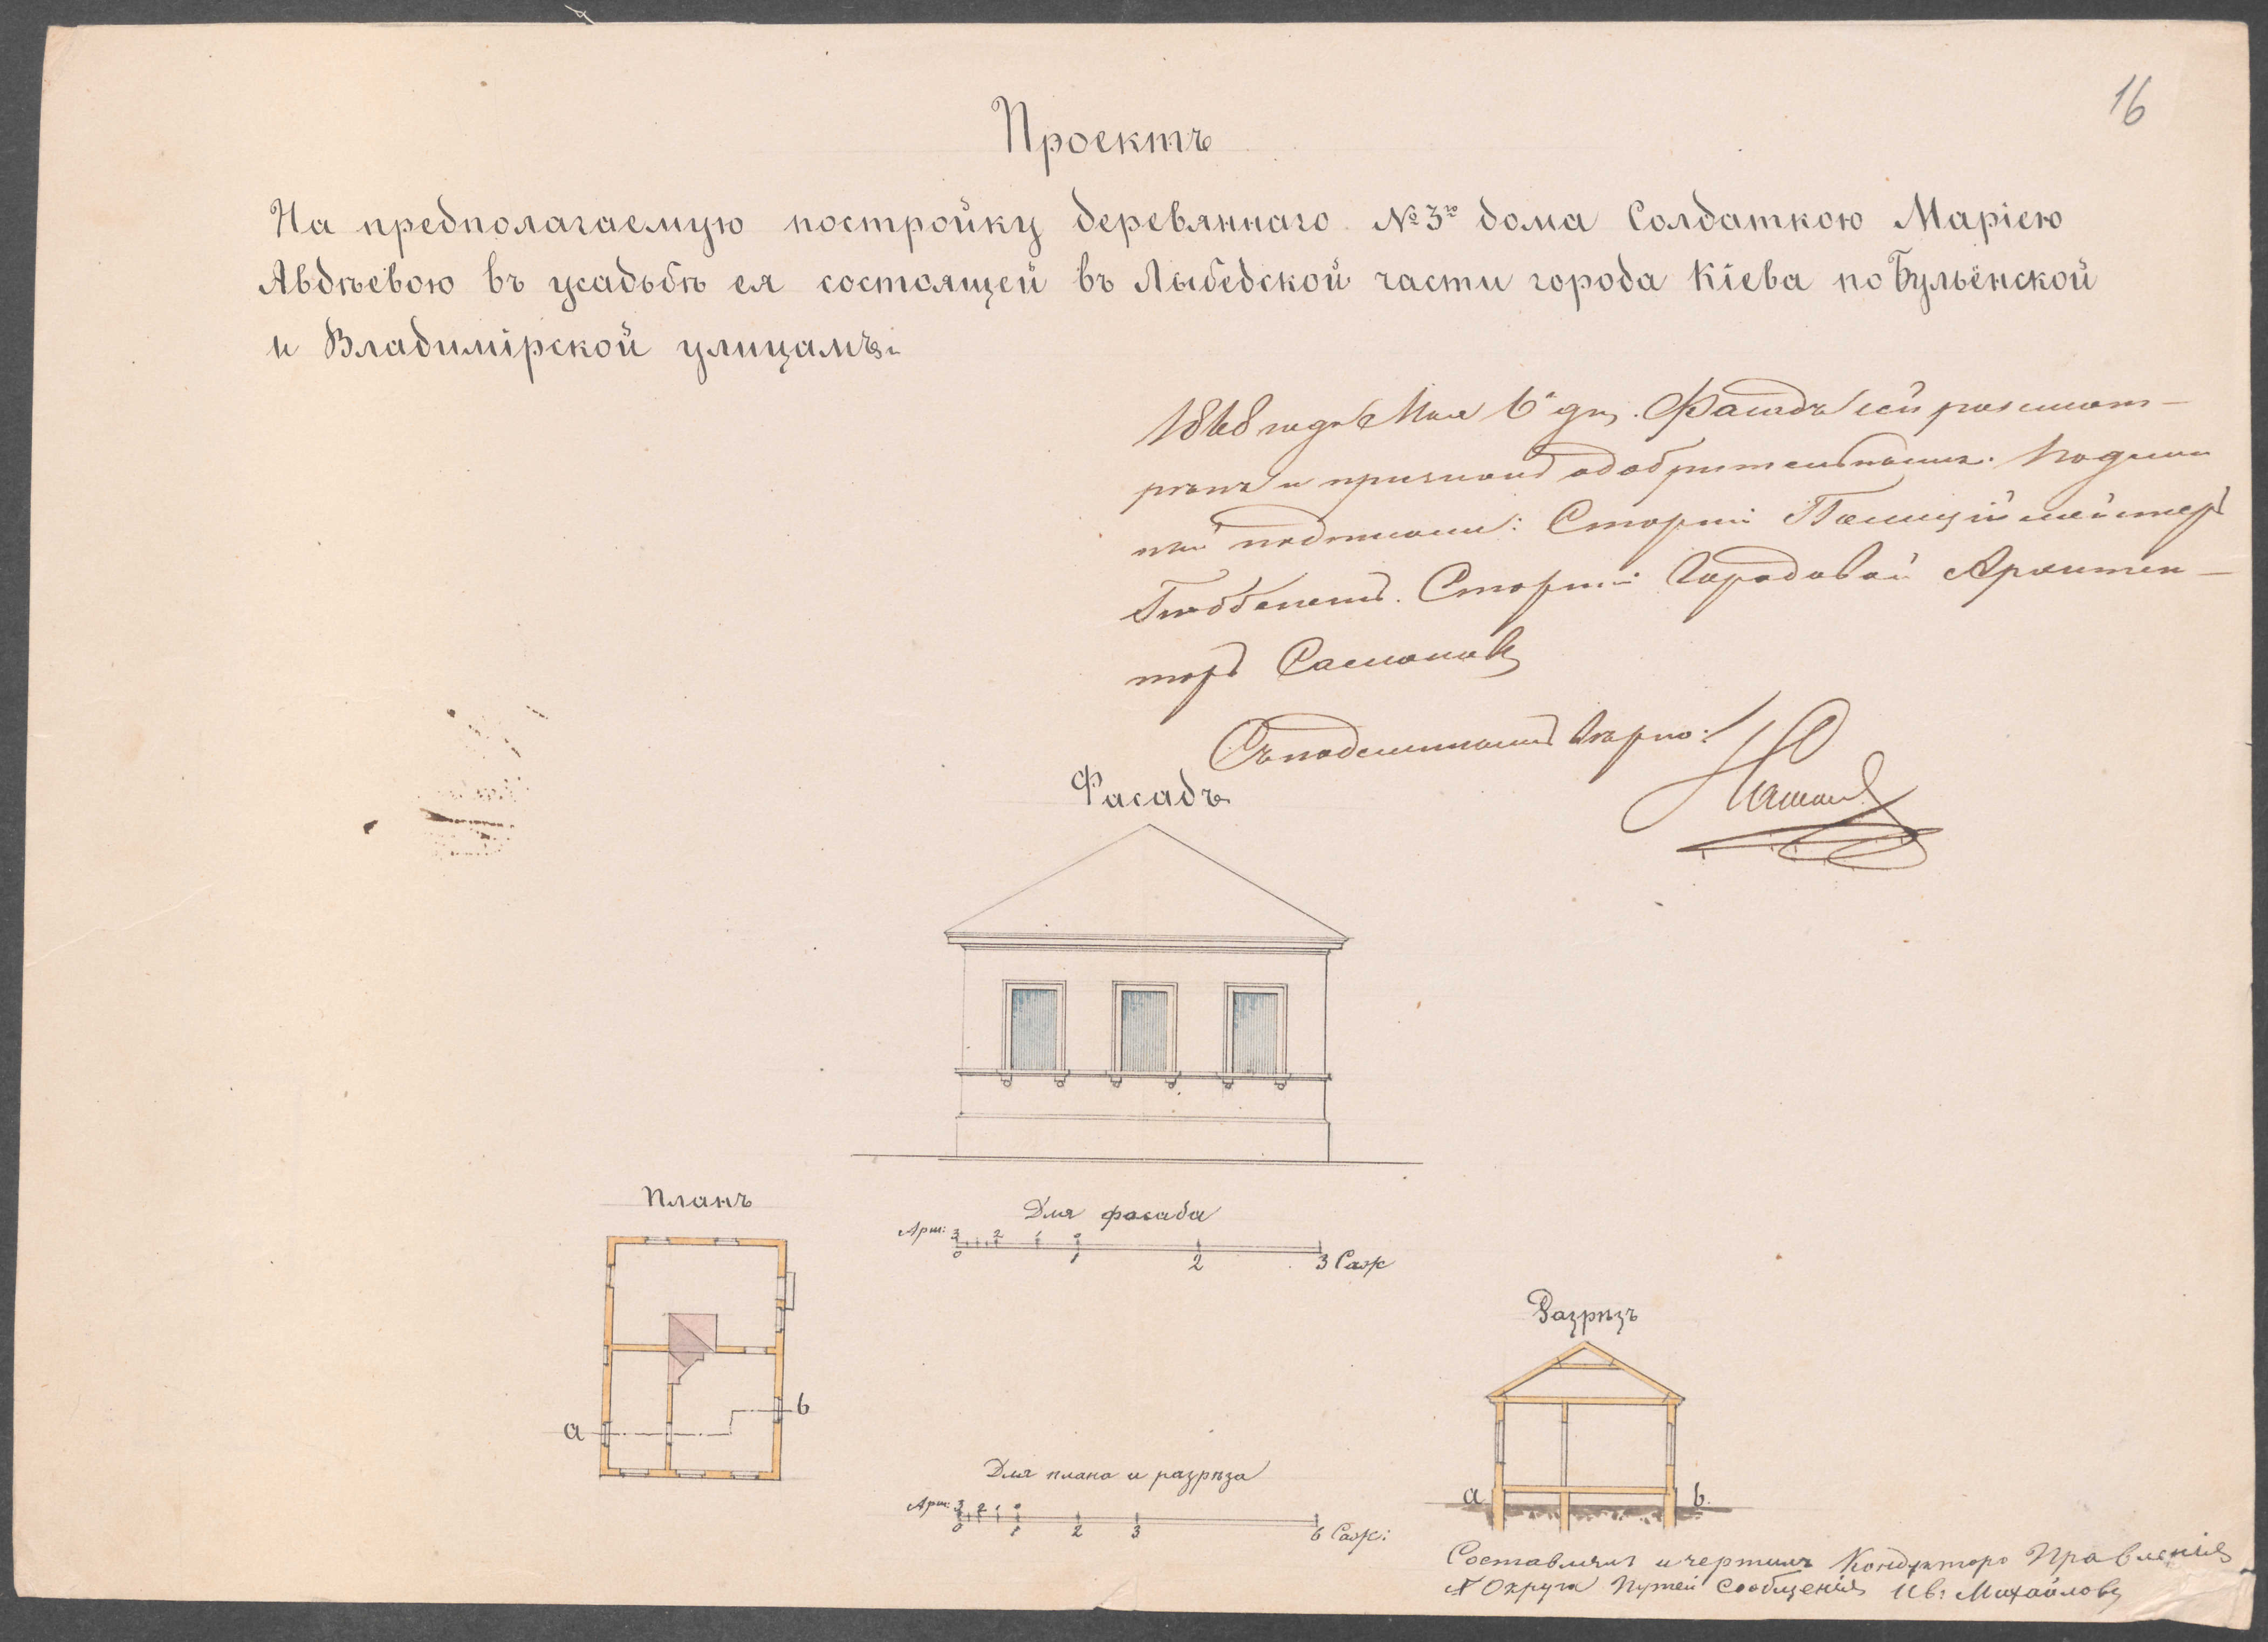 16
Проектъ
На предполагаемую постройку деревяннаго № 3го дома Солдаткою Маріею
Авдѣевою въ усадьбѣ ея состоящей въ Лыбедской части города Кіева по Бульёнской
и Владимірской улицамъ.
1868 года Мая 6 дня. Фасадъ сей разсмат-
рѣнъ и признанъ одобрительнымъ. Подлин
ный подписали: Старшій Полиціймейстеръ
Старшій Городовой Архитек-
торъ
Съ подлиннымъ вѣрно:
Фасадъ
Планъ
Для фасада
Арш: 3 2 1 0
0 1 2 3 Саж
Разрѣзъ
a b
Для плана и разрѣза
Арш: 3 2 1 0
0 1 2 3 6 Саж:
a b.
Составлялъ и чертилъ Кондукторъ Правленія
X Округа Путей Сообщенія Ив: Михайловъ